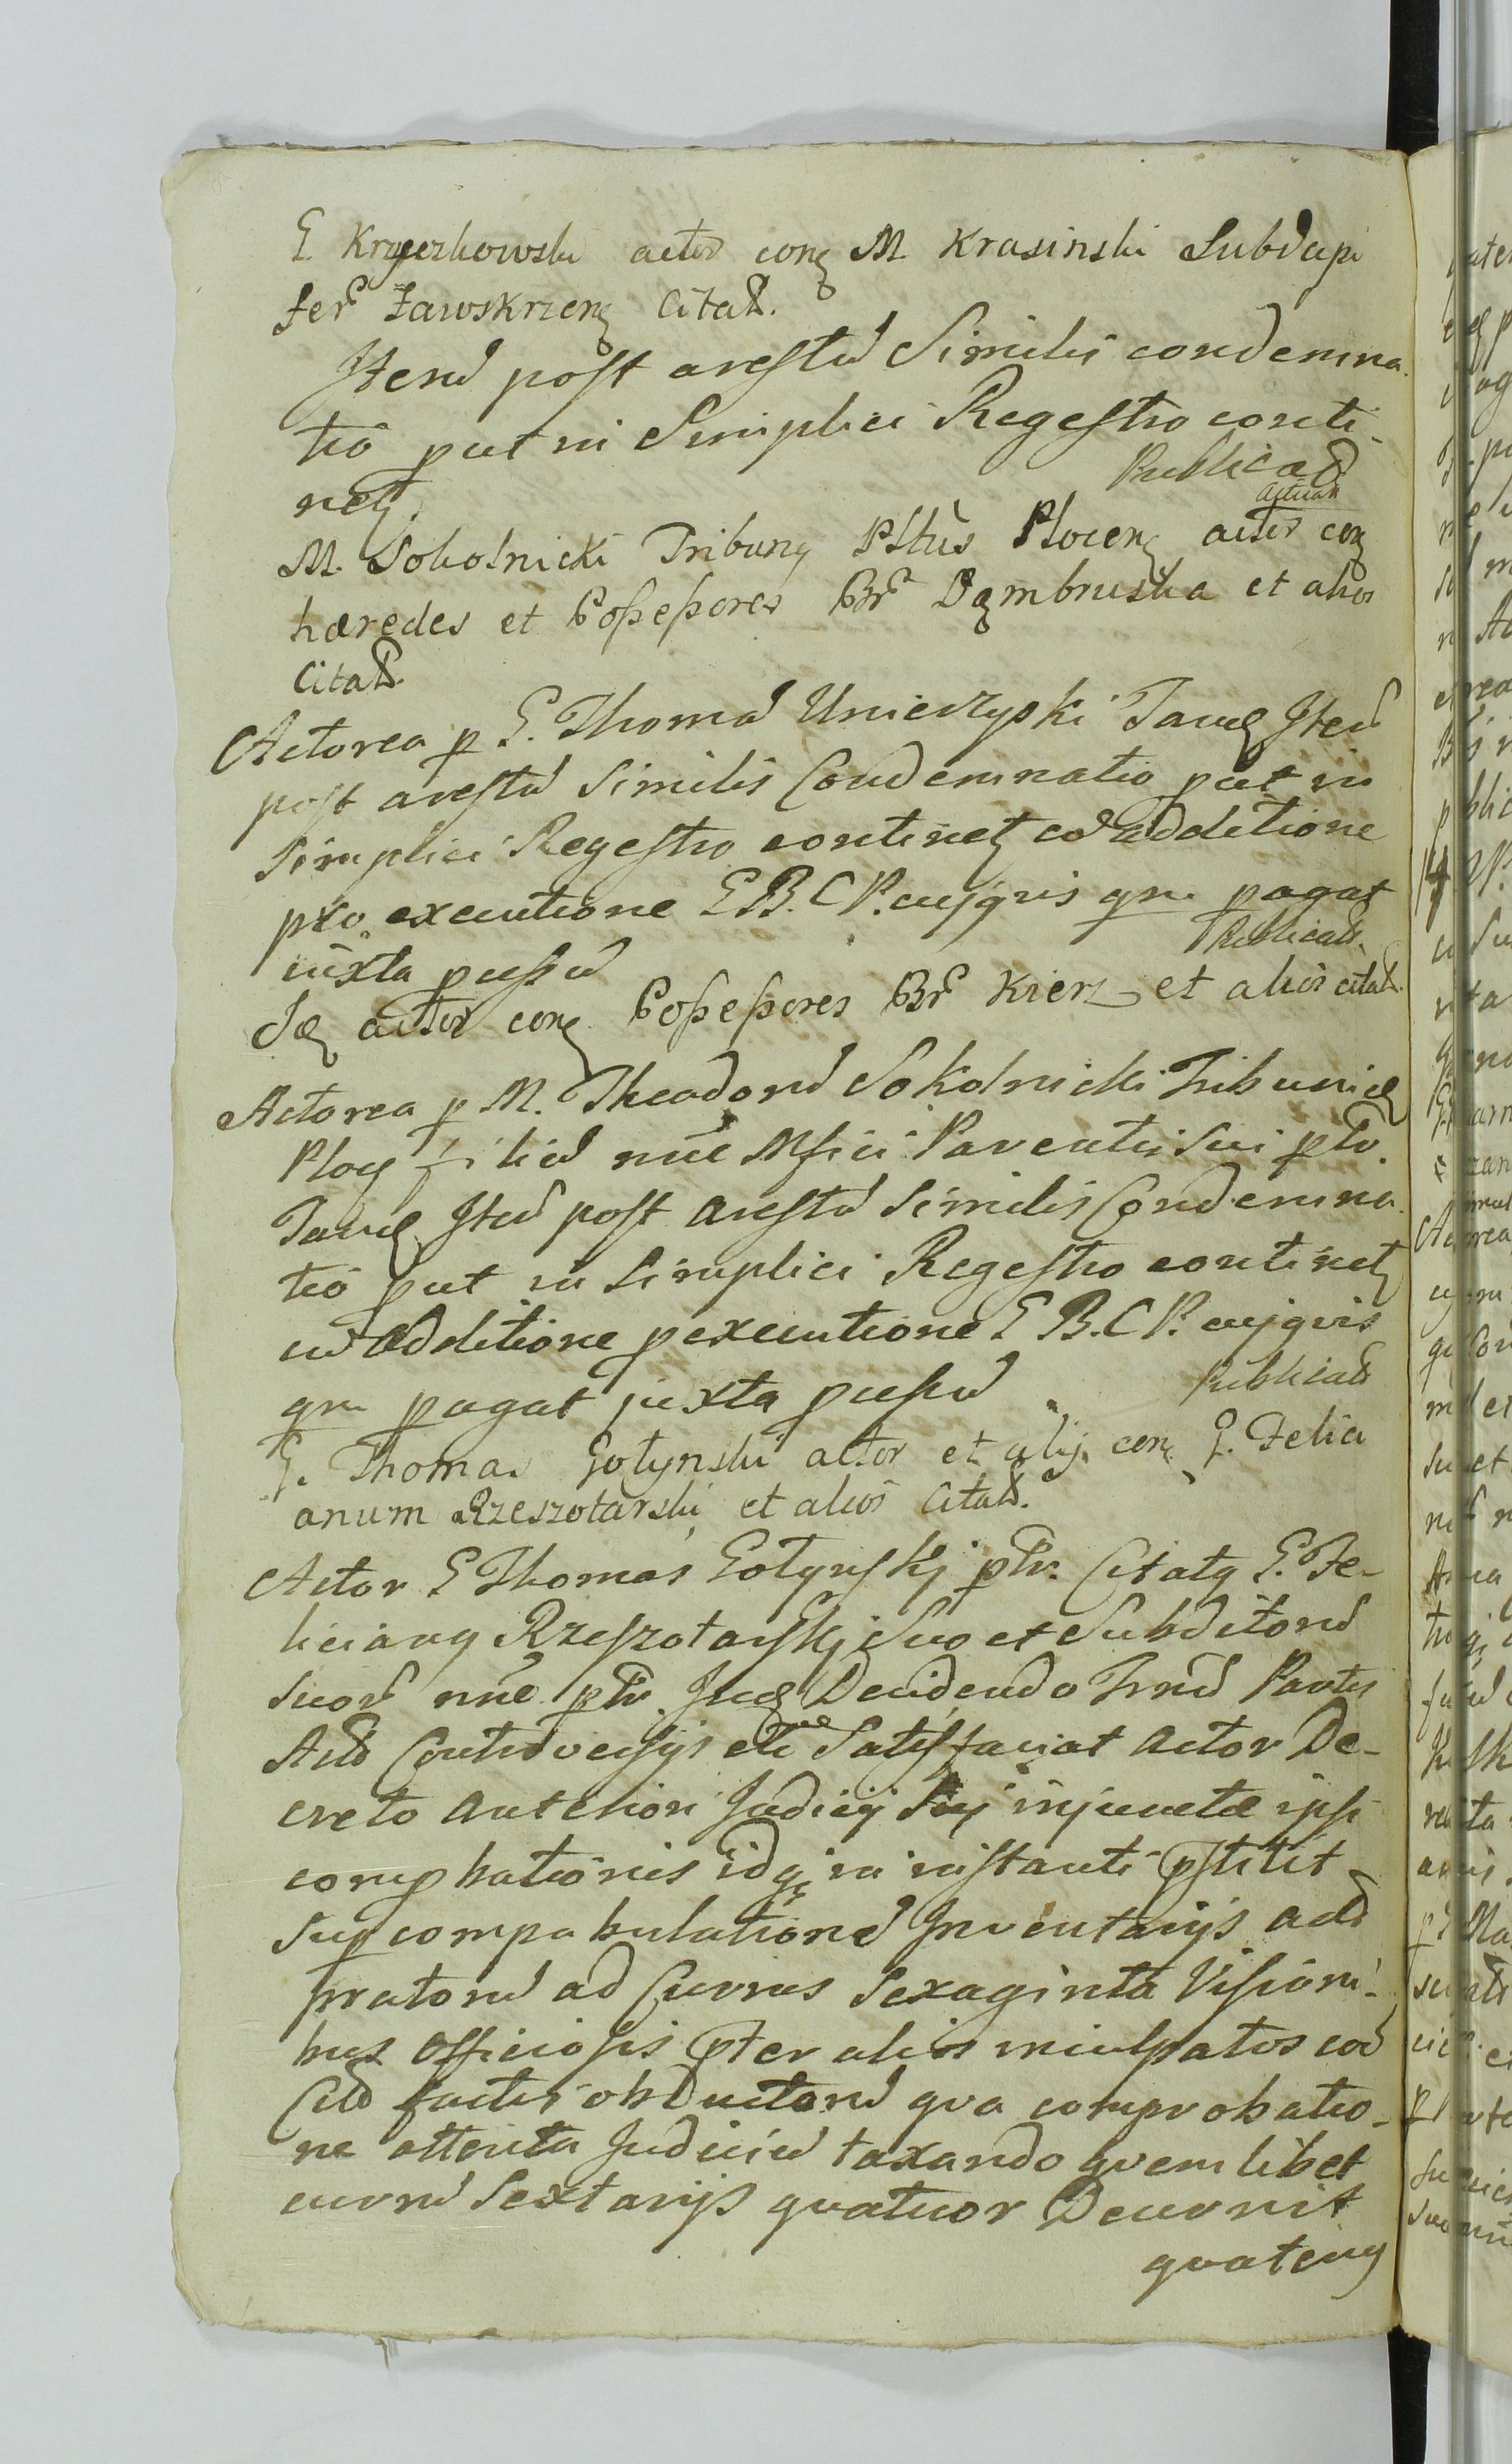 G. Krzyczkowski actor conq M Krasinski Subdapi
ferū Zawskrzenq Citatū.
Itend post arestū Similis condemna-
tio put in Simplici Regestro conti-
netq. Publicatū
M. Sokolnicki Tribunq Pltūs Plocenq actor conq
Actuatū
hæredes et Possessores Brū Dąmbruska et alios
Citatū
Actorea p G. Thomā Unierzyski Tanqq Iteū
post arestū Similis Condemnatio put in
Simplici Regestro continetq cū additione
pro executione G B. C P. cujqvis qm pagat
iuxta pressū Publicatū
Idq actor conq Possessores Brū Kierz et alios citatū.
Actorea p M. Theodorū Sokolnicki Tribunidq
Plocq filiū nñe Msici Parentis sui ptr.
Tanqq Iteū post arestū Similis Condemna-
tio put in Simplici Regestro continetq
cū additione p executione G B. C P. cujqvis
qm pagat juxta pressū Publicatū
G. Thomas Gołynski actor et alij conq G. Felici
anum Rzeszotarski et alios Citatū.
Actor G Thomas Gołynskj ptr. Citatq G. Fe-
licianq Rzeszotarskj Suo et Subditorū
Suorū nñe ptr. Decidendo Inter Partes
Actū Controversijs Satisfaciat actor De-
creto anteriori Judicij Sui injunctæ ipsi
comprobationis idq in instanti pstitit
Sup compabulationē Inventarijs actū
pratorū ad Currus Sexaginta Visioni-
bus officiosis pter alios inculpatos
factis obductorū qva comprobatio-
ne attenta Judiciū taxando qvemlibet
currū Sextarijs qvatuor Decernit
qvatenq